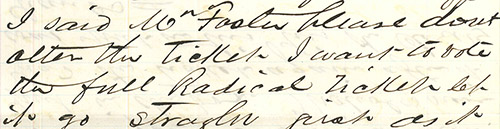 I said Mr Foster please dont
alter the ticket I want to vote
the full Radical ticket let
it go straght jist as it